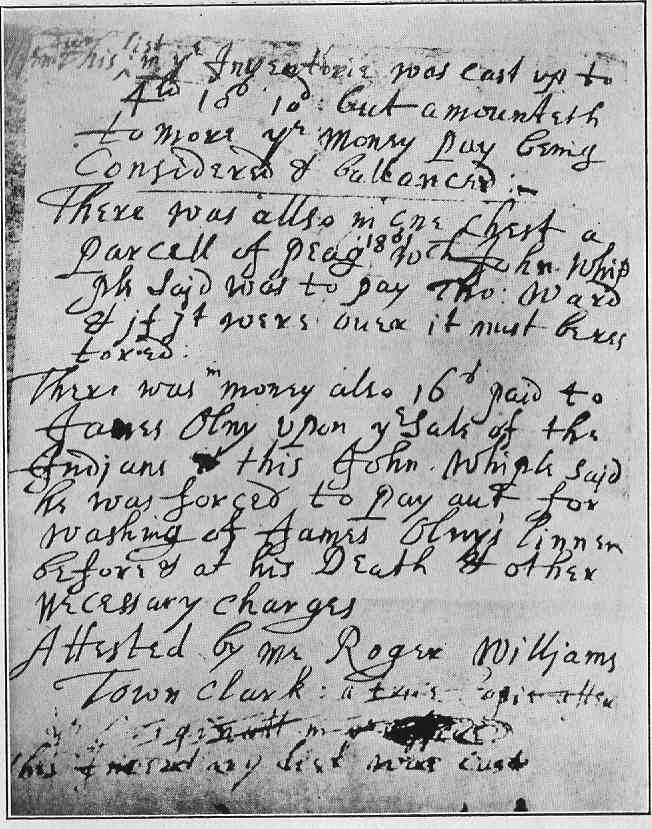 list
his in yᵉ Inventorie was cast up to
4ˡᵇ 18ˢ 10ᵈ but amounteth
to more yᵉ money pay being
Considered & ballanced:-
There was allso in one Chest a
parcell of peag 18ᵈ wᶜʰ John Whip
ple said was to pay Tho: Ward
& if It were over it must be res
tored:
There was ᵐ money also 16ᵈ paid to
James Olny upon yᵉ Sale of the
Indians this John Whiple said
he was forced to pay out for
washing of James Olnys linnen
before & at his Death & other
Necessary Charges
Attested by me Roger Williams
Town Clark: a true Copie after
list was cast